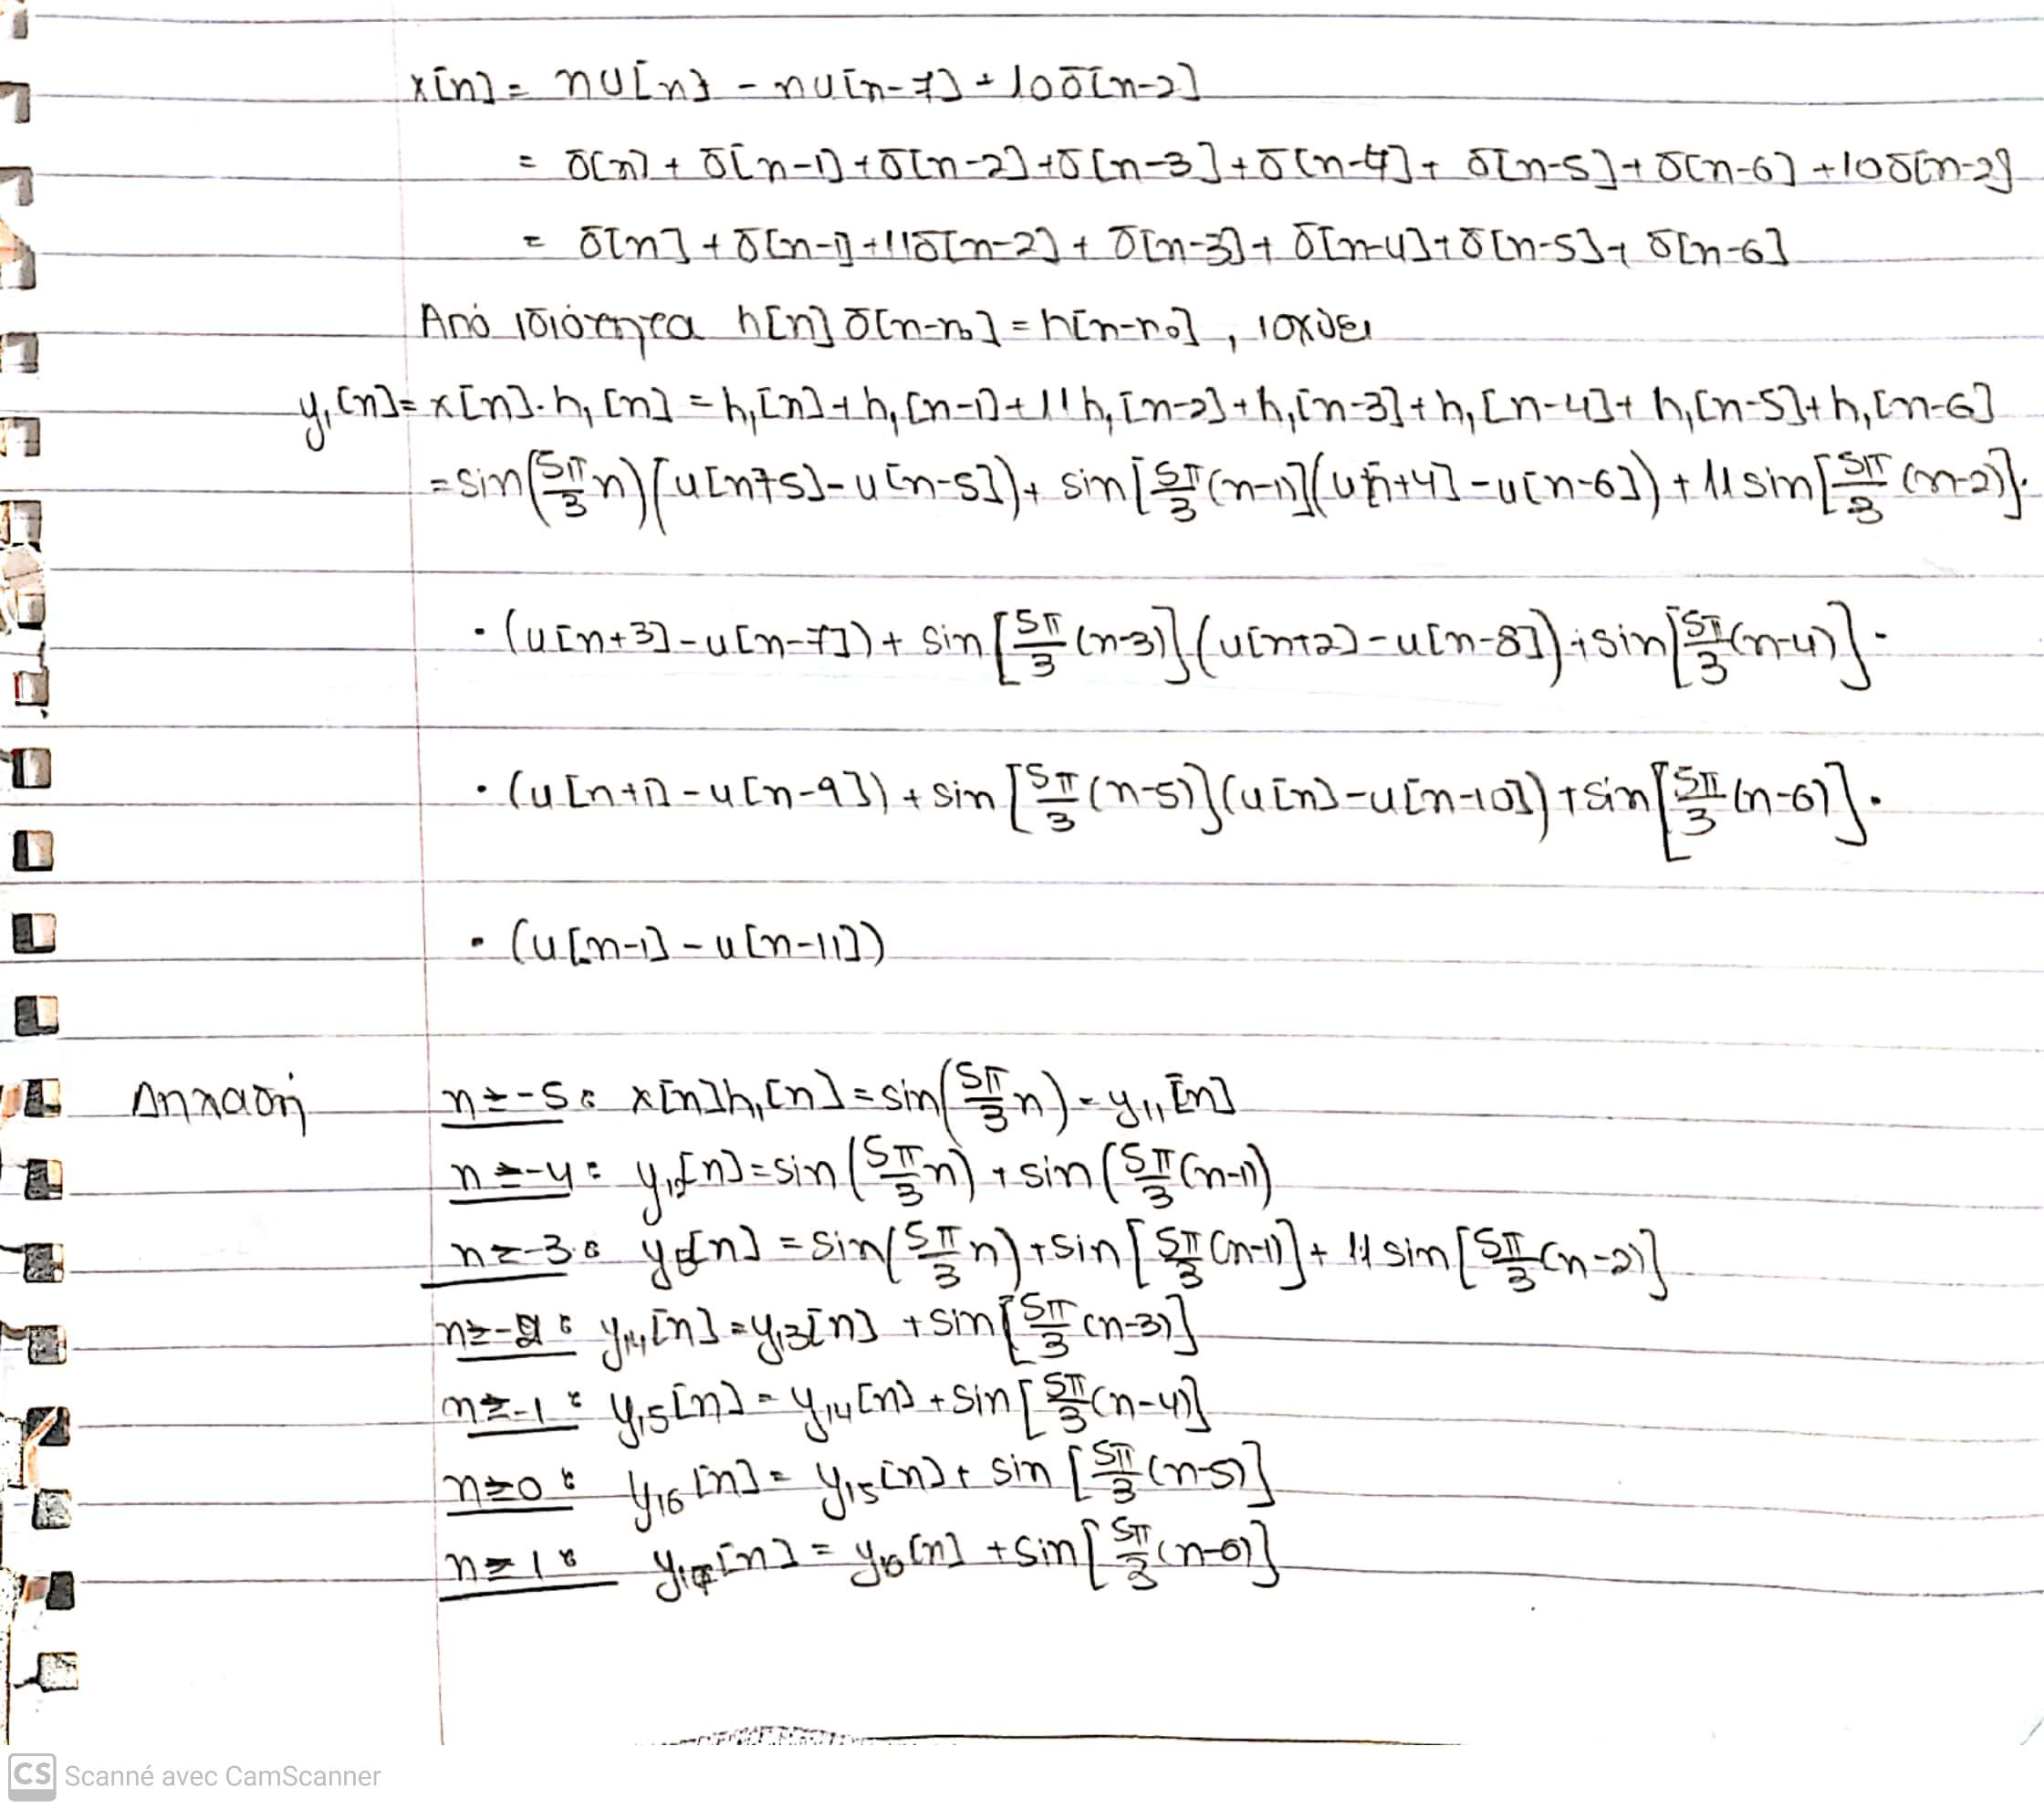 x[n] = nu[n] - nu[n-7] + 10δ[n-2]
= δ[n] + δ[n-1] + δ[n-2] + δ[n-3] + δ[n-4] + δ[n-5] + δ[n-6] + 10δ[n-2]
= δ[n] + δ[n-1] + 11δ[n-2] + δ[n-3] + δ[n-4] + δ[n-5] + δ[n-6]
Από ιδιότητα h[n] δ[n-n₀] = h[n-n₀], ισχύει
y₁[n] = x[n]·h₁[n] = h₁[n] + h₁[n-1] + 11h₁[n-2] + h₁[n-3] + h₁[n-4] + h₁[n-5] + h₁[n-6]
= sin(5π/3 n)(u[n+5] - u[n-5]) + sin[5π/3 (n-1)](u[n+4] - u[n-6]) + 11 sin[5π/3 (n-2)]·
·(u[n+3] - u[n-7]) + sin[5π/3 (n-3)](u[n+2] - u[n-8]) + sin[5π/3 (n-4)]·
·(u[n+1] - u[n-9]) + sin[5π/3 (n-5)](u[n] - u[n-10]) + sin[5π/3 (n-6)]·
·(u[n-1] - u[n-11])
Δηλαδή n≥-5: x[n]h₁[n] = sin(5π/3 n) = y₁₁[n]
n≥-4: y₁₂[n] = sin(5π/3 n) + sin(5π/3 (n-1))
n≥-3: y₁₃[n] = sin(5π/3 n) + sin[5π/3 (n-1)] + 11 sin[5π/3 (n-2)]
n≥-2: y₁₄[n] = y₁₃[n] + sin[5π/3 (n-3)]
n≥-1: y₁₅[n] = y₁₄[n] + sin[5π/3 (n-4)]
n≥0: y₁₆[n] = y₁₅[n] + sin[5π/3 (n-5)]
n≥1: y₁₇[n] = y₁₆[n] + sin[5π/3 (n-6)]
CS Scanné avec CamScanner